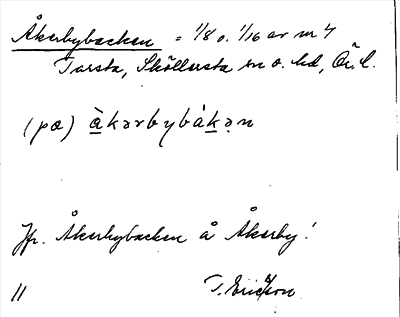 Åkerbybacken = 1/8 o. 1/16 av nr 4
Tarsta, Sköllersta sn o. hd, Ör. l.
(pœ) à̱kərbybáḵə̣n
Jfr. Åkerbybacken å Åkerby!
11 T. Ericsson